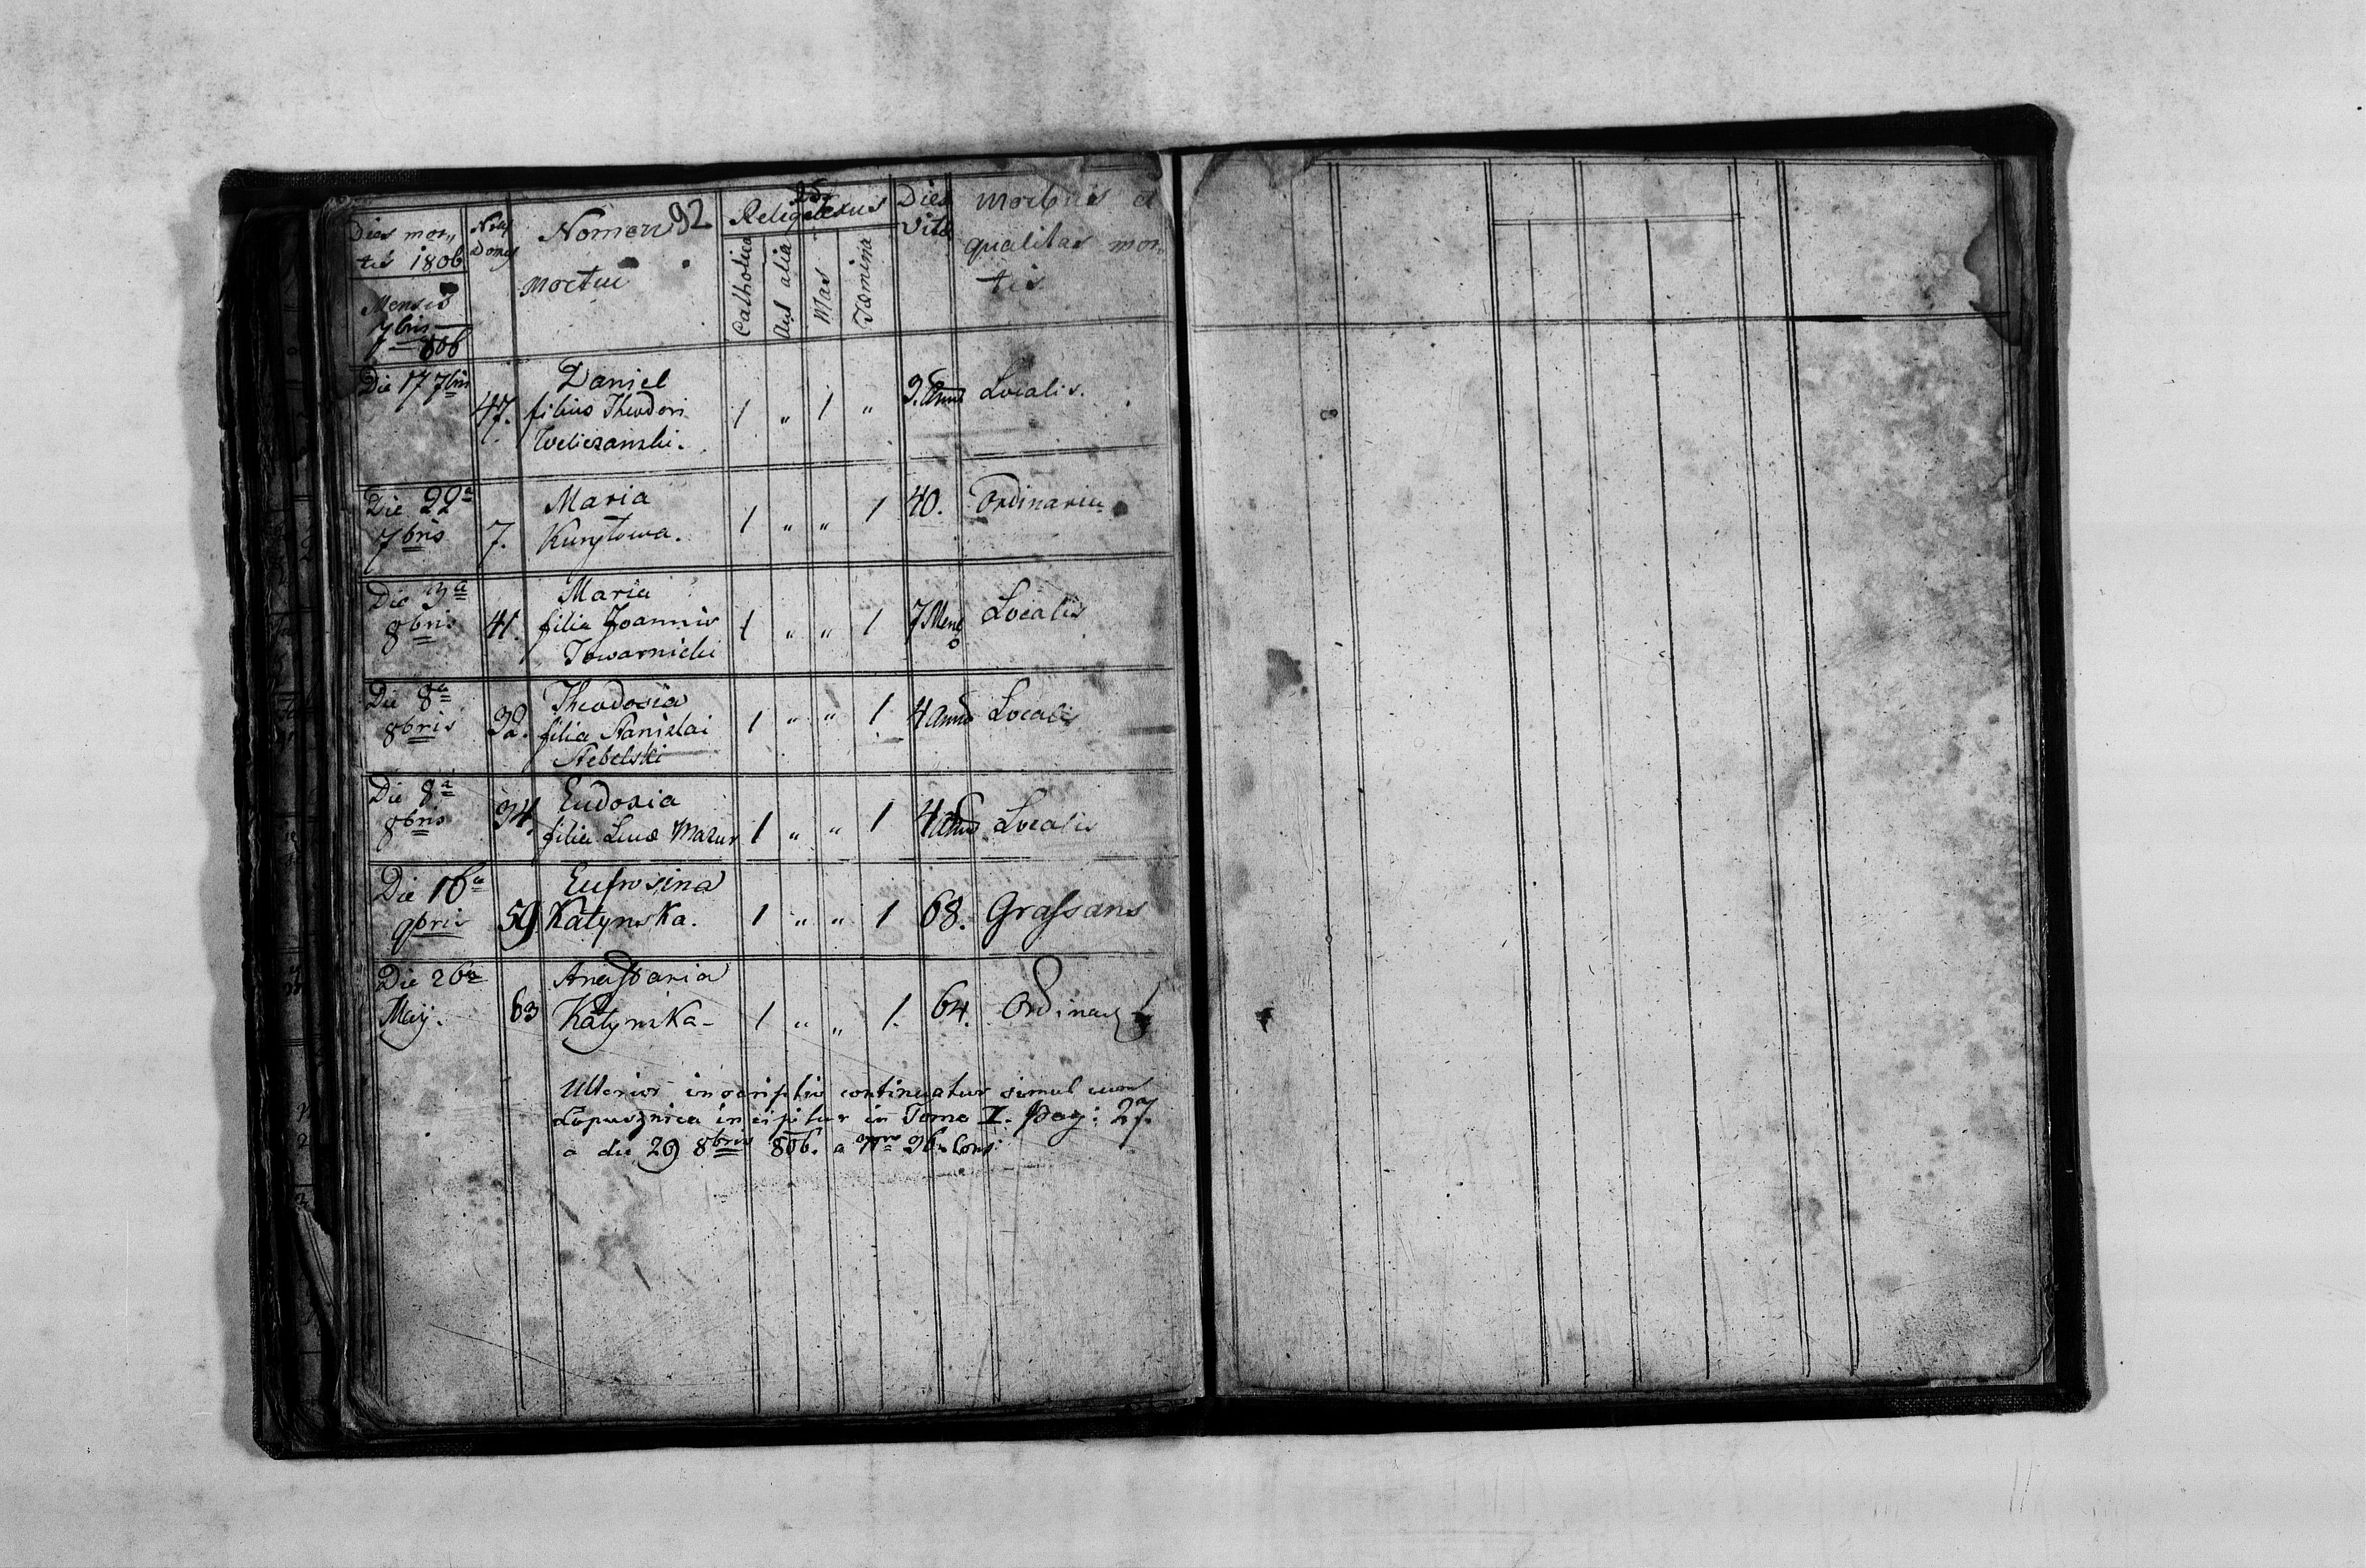 Dies mor„
tis 1806
Mensis
7bris
806
Nrus
Domus
Nomen 92
Mortui
Relig Sexus
Catholica
Aut alia
Mas
Fæmina
Dies
Vitæ
Morbus et
qualitas mor„
tis
Die 17 7bris 47. Daniel
filius Theodori
Weliczanski. 1 „ 1 „ 3. Annos Localis.
Die 22a
7bris 7. Maria
1 „ „ 1 40. Ordinariu
Die 3a
8bris 41. Maria
filia Joannis
Towarnicki 1 „ „ 1 7 Mens Localis
Die 8a
8bris 32. Theodosia
filia Stanislai
Stebelski 1 „ „ 1 4 Annos Localis
Die 8a
8bris 34. Eudoxia
filia Lucæ Mazur 1 „ „ 1 4 Annos Localis
Die 16a
9bris 59 Eufrosina
Katynska. 1 „ „ 1 68. Grassans
Die 26a
Maij. 63 Anastasia
Katynska - 1 „ „ 1. 64. Ordinar
Ulterior inscriptio continuatur simul cum
Lopusznica incipitur in Tomo II. Pag: 27.
a die 29 8bris 806. a Nro 36. Cons: